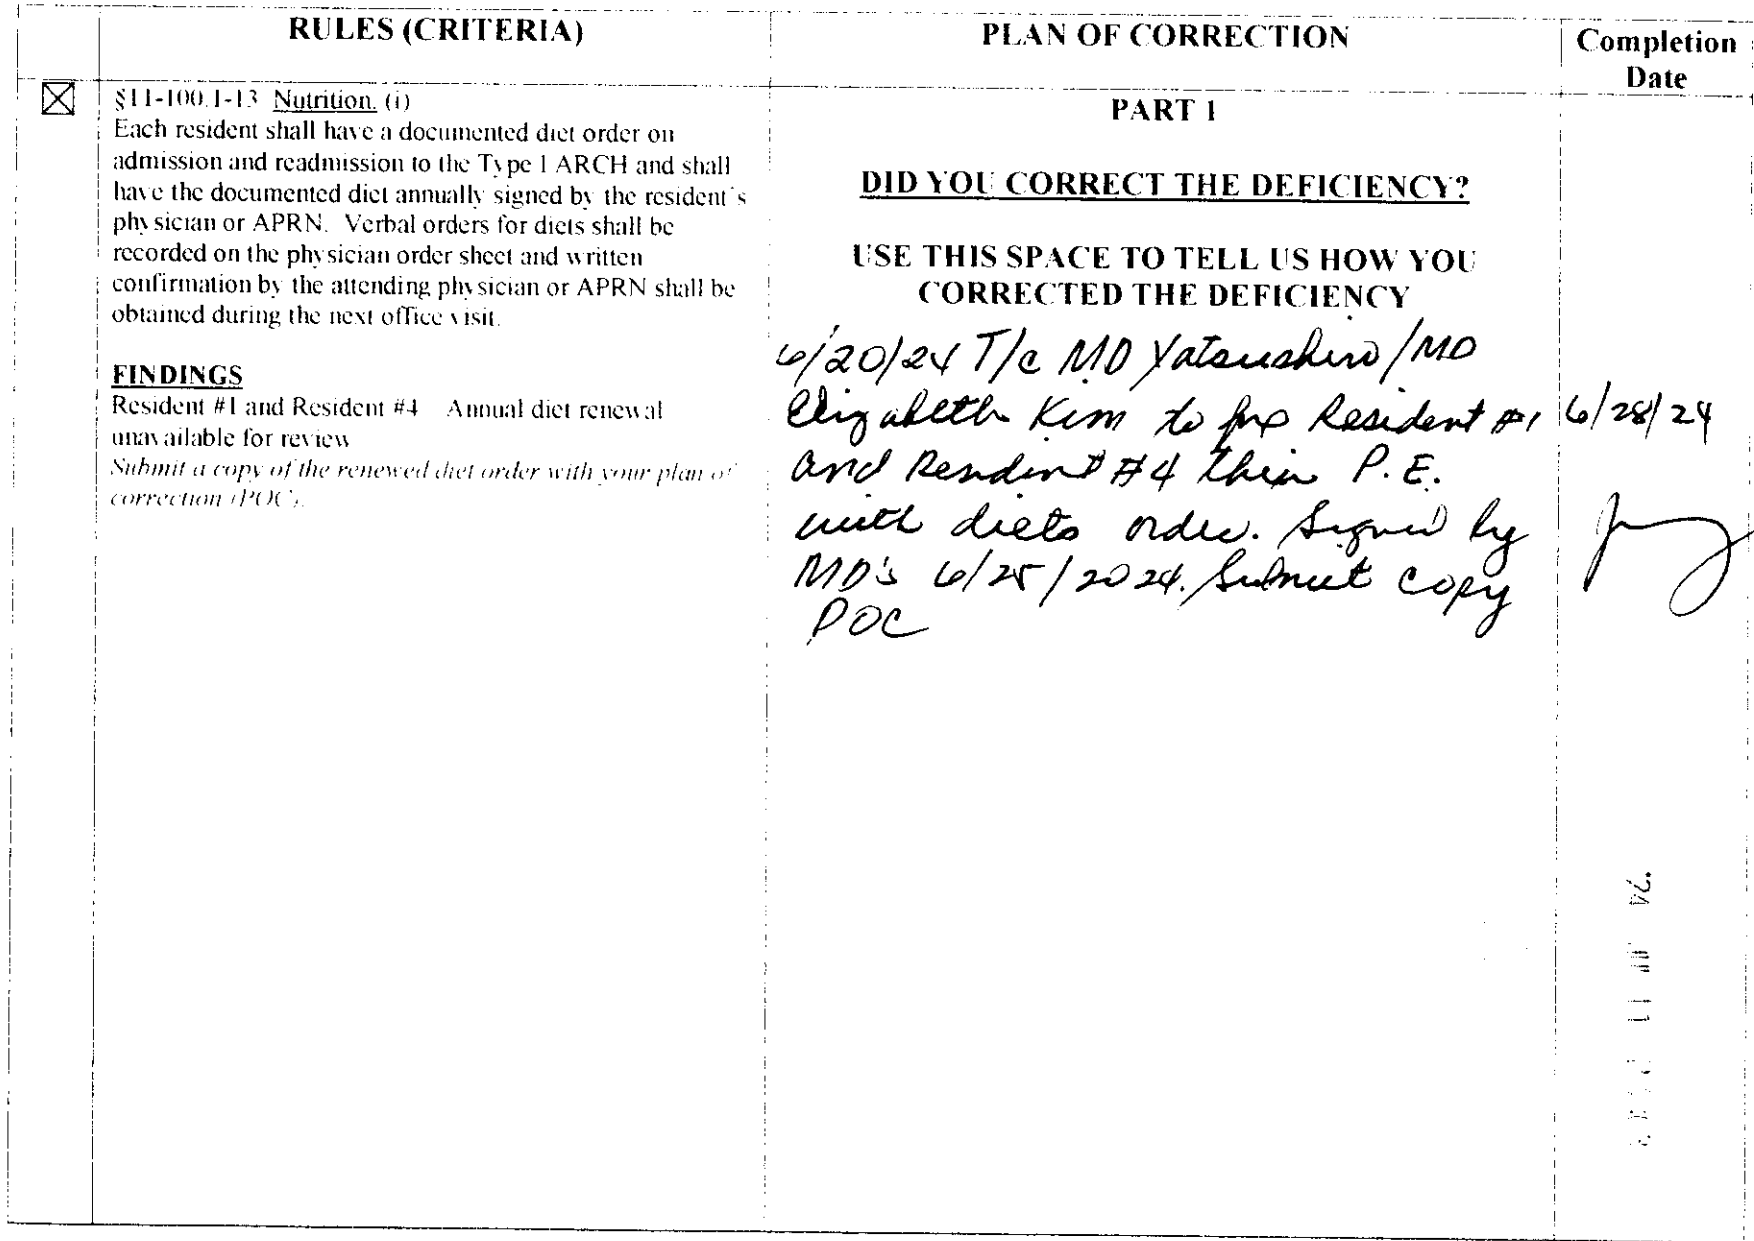 RULES (CRITERIA)
PLAN OF CORRECTION
Completion
Date
§11-100.1-13 Nutrition. (i)
Each resident shall have a documented diet order on
admission and readmission to the Type I ARCH and shall
have the documented diet annually signed by the resident's
physician or APRN. Verbal orders for diets shall be
recorded on the physician order sheet and written
confirmation by the attending physician or APRN shall be
obtained during the next office visit.
FINDINGS
Resident #1 and Resident #4 Annual diet renewal
unavailable for review
Submit a copy of the renewed diet order with your plan of
correction (POC).
PART 1
DID YOU CORRECT THE DEFICIENCY?
USE THIS SPACE TO TELL US HOW YOU
CORRECTED THE DEFICIENCY
6/20/24 T/c MD Yatsushiro/MD
Elizabeth Kim to Resident #1
and Resident #4 their P.E.
with diets order. Signed by
MD's 6/25/2024. Submit copy
POC
6/28/24
'24
11